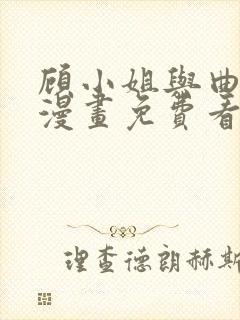 顾小姐與曲
漫畫免費看
理查德朗赫斯